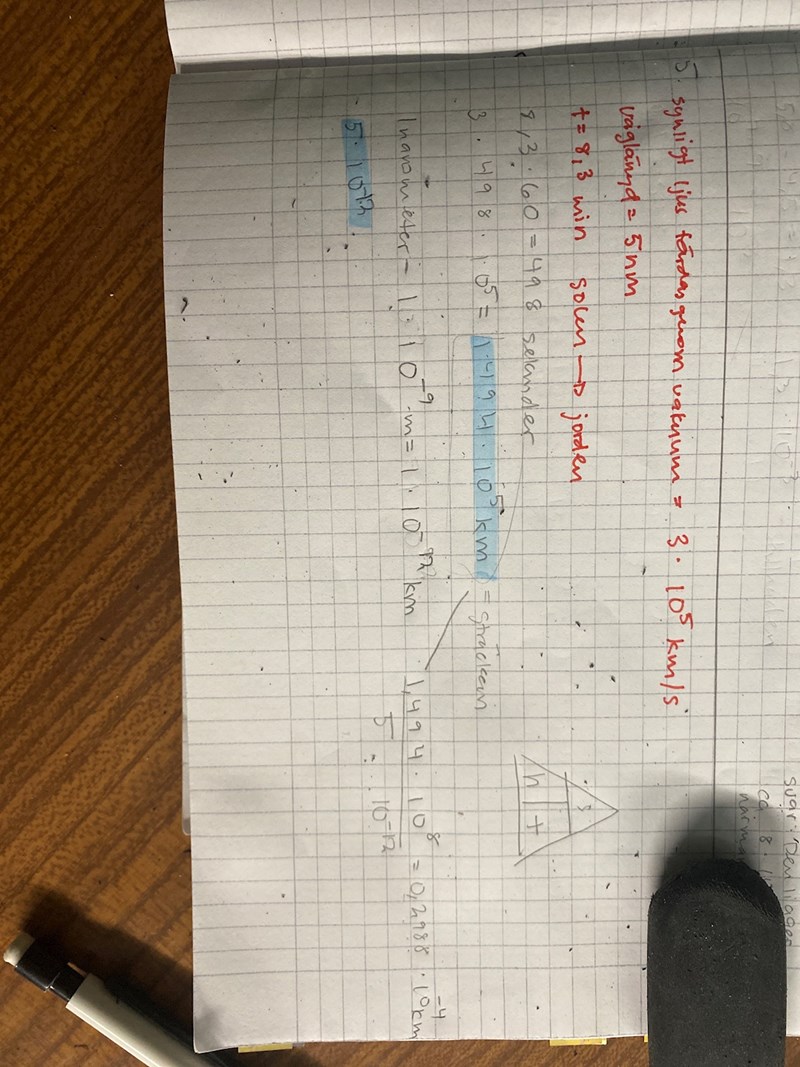 5. synligt ljus färdas genom vakuum = 3 · 10⁵ km/s
våglängd = 5nm
t = 8,3 min solen → jorden
8,3 · 60 = 498 sekunder
3 · 498 · 10⁵ = 1494 · 10⁵ km = sträckan
s
h t
1 nanometer = 1 · 10⁻⁹ · m = 1 · 10⁻¹² km
1,494 · 10⁸ / 5 · 10⁻¹² = 0,2988 · 10⁻⁴ km
5 · 10⁻¹²